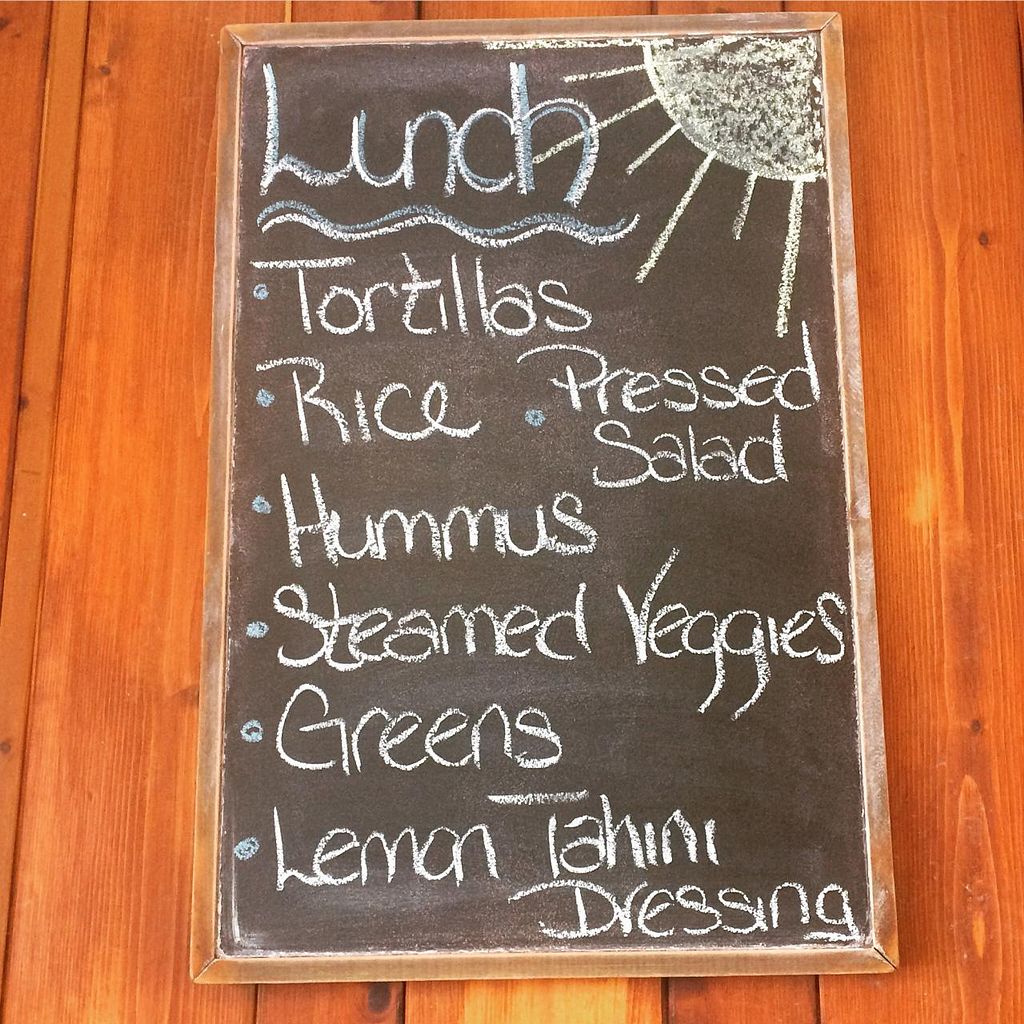 Lunch
• Tortillas
• Rice
• Pressed
Salad
• Hummus
• Steamed Veggies
• Greens
• Lemon Tahini
Dressing